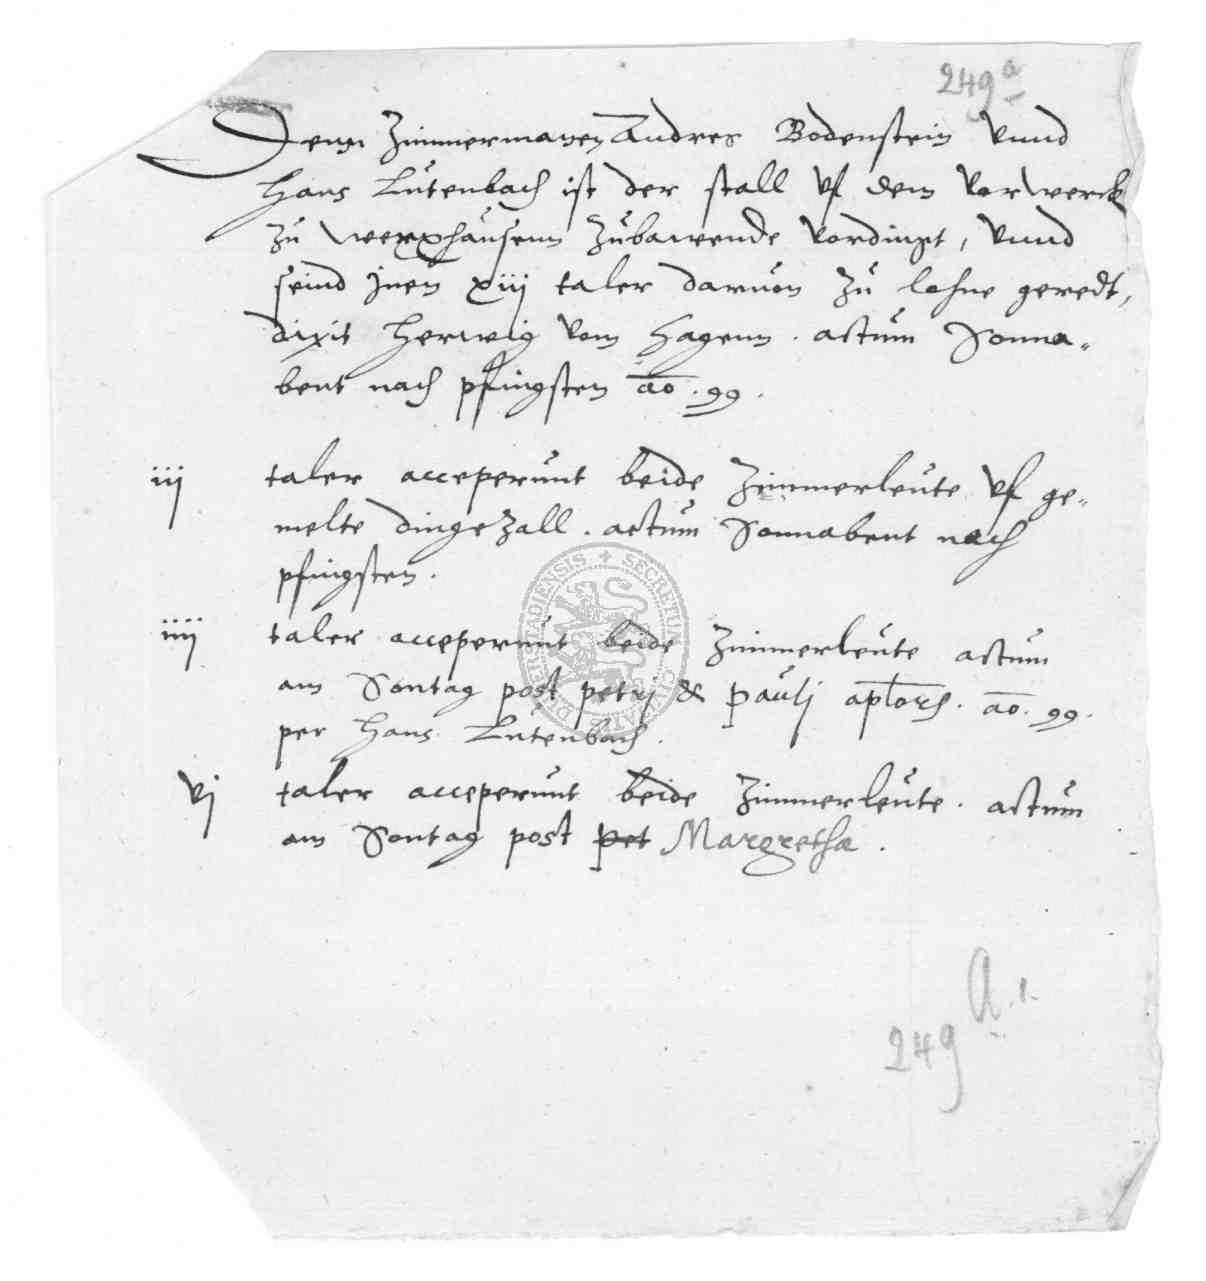 249a
Denn Zimmermanen Andres Bodenstein vnnd
Hans Lutenbach ist der stall vf dem vorwerck
zu werxhausenn zubawende vordingt, vnnd
seind Jnen xiij taler daruon zu lohne geredt,
dixit Herwig vom Hagenn . actum Sonna-
bent nach pfingsten ao . 99 .
iij taler acceperunt beide Zimmerleute vf ge-
melte dingezall . actum Sonnabent nach
pfingsten .
iiij taler acceperunt beide Zimmerleute actum
am Sontag post petri & pauli aplors . ao . 99 .
per Hans Lutenbach .
vj taler acceperunt beide Zimmerleute . actum
am Sontag post pet Margretha .
A . 1 .
249